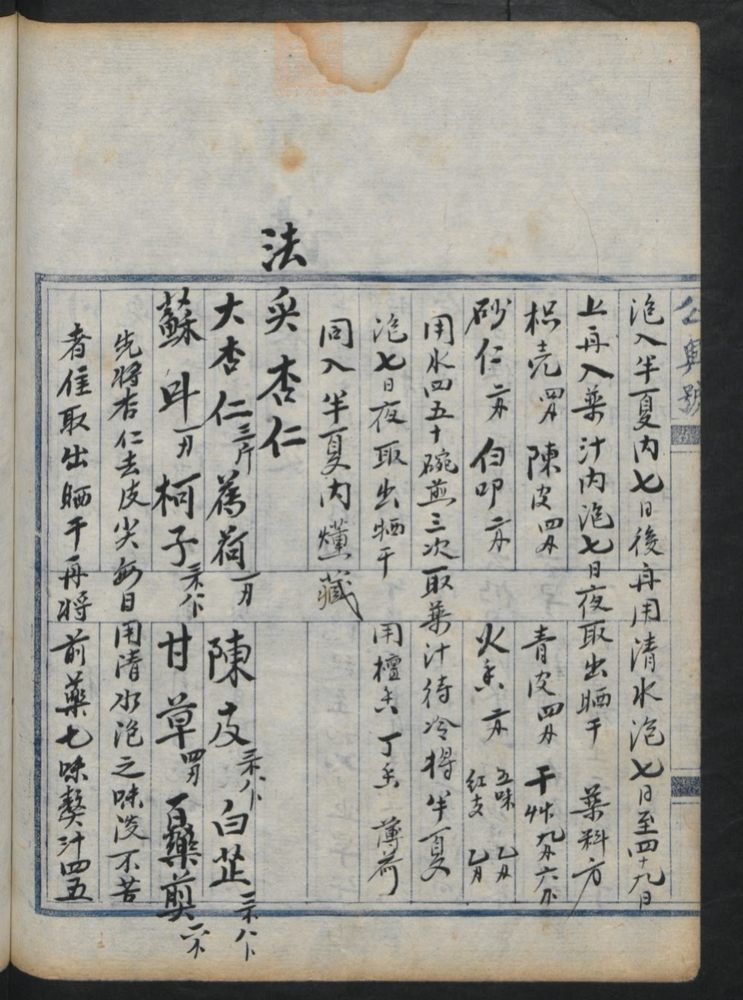 公興號
泡入半夏内七日後再用清水泡七日至四十九日
上再入藥汁内泡七日夜取出晒干 藥料方
枳壳四两 陳皮四两 青皮四两 干艸九两六卜
砂仁二两 白叩二两 火香二两 五味乙两 紅支乙两
用水四五十碗煎三次取藥汁待冷得半夏
泡七日夜取出晒干 用檀香丁香薄荷
同入半夏内燻藏
法炙杏仁
大杏仁三斤 蒡荷一两 陳皮三 八卜 白芷三 八卜
蘇叶一两 柯子三 六卜 甘草四两 百藥煎 六
先將杏仁去皮尖每日用清水泡之味淡不苦
者佳取出晒干再將前藥七味熬汁四五